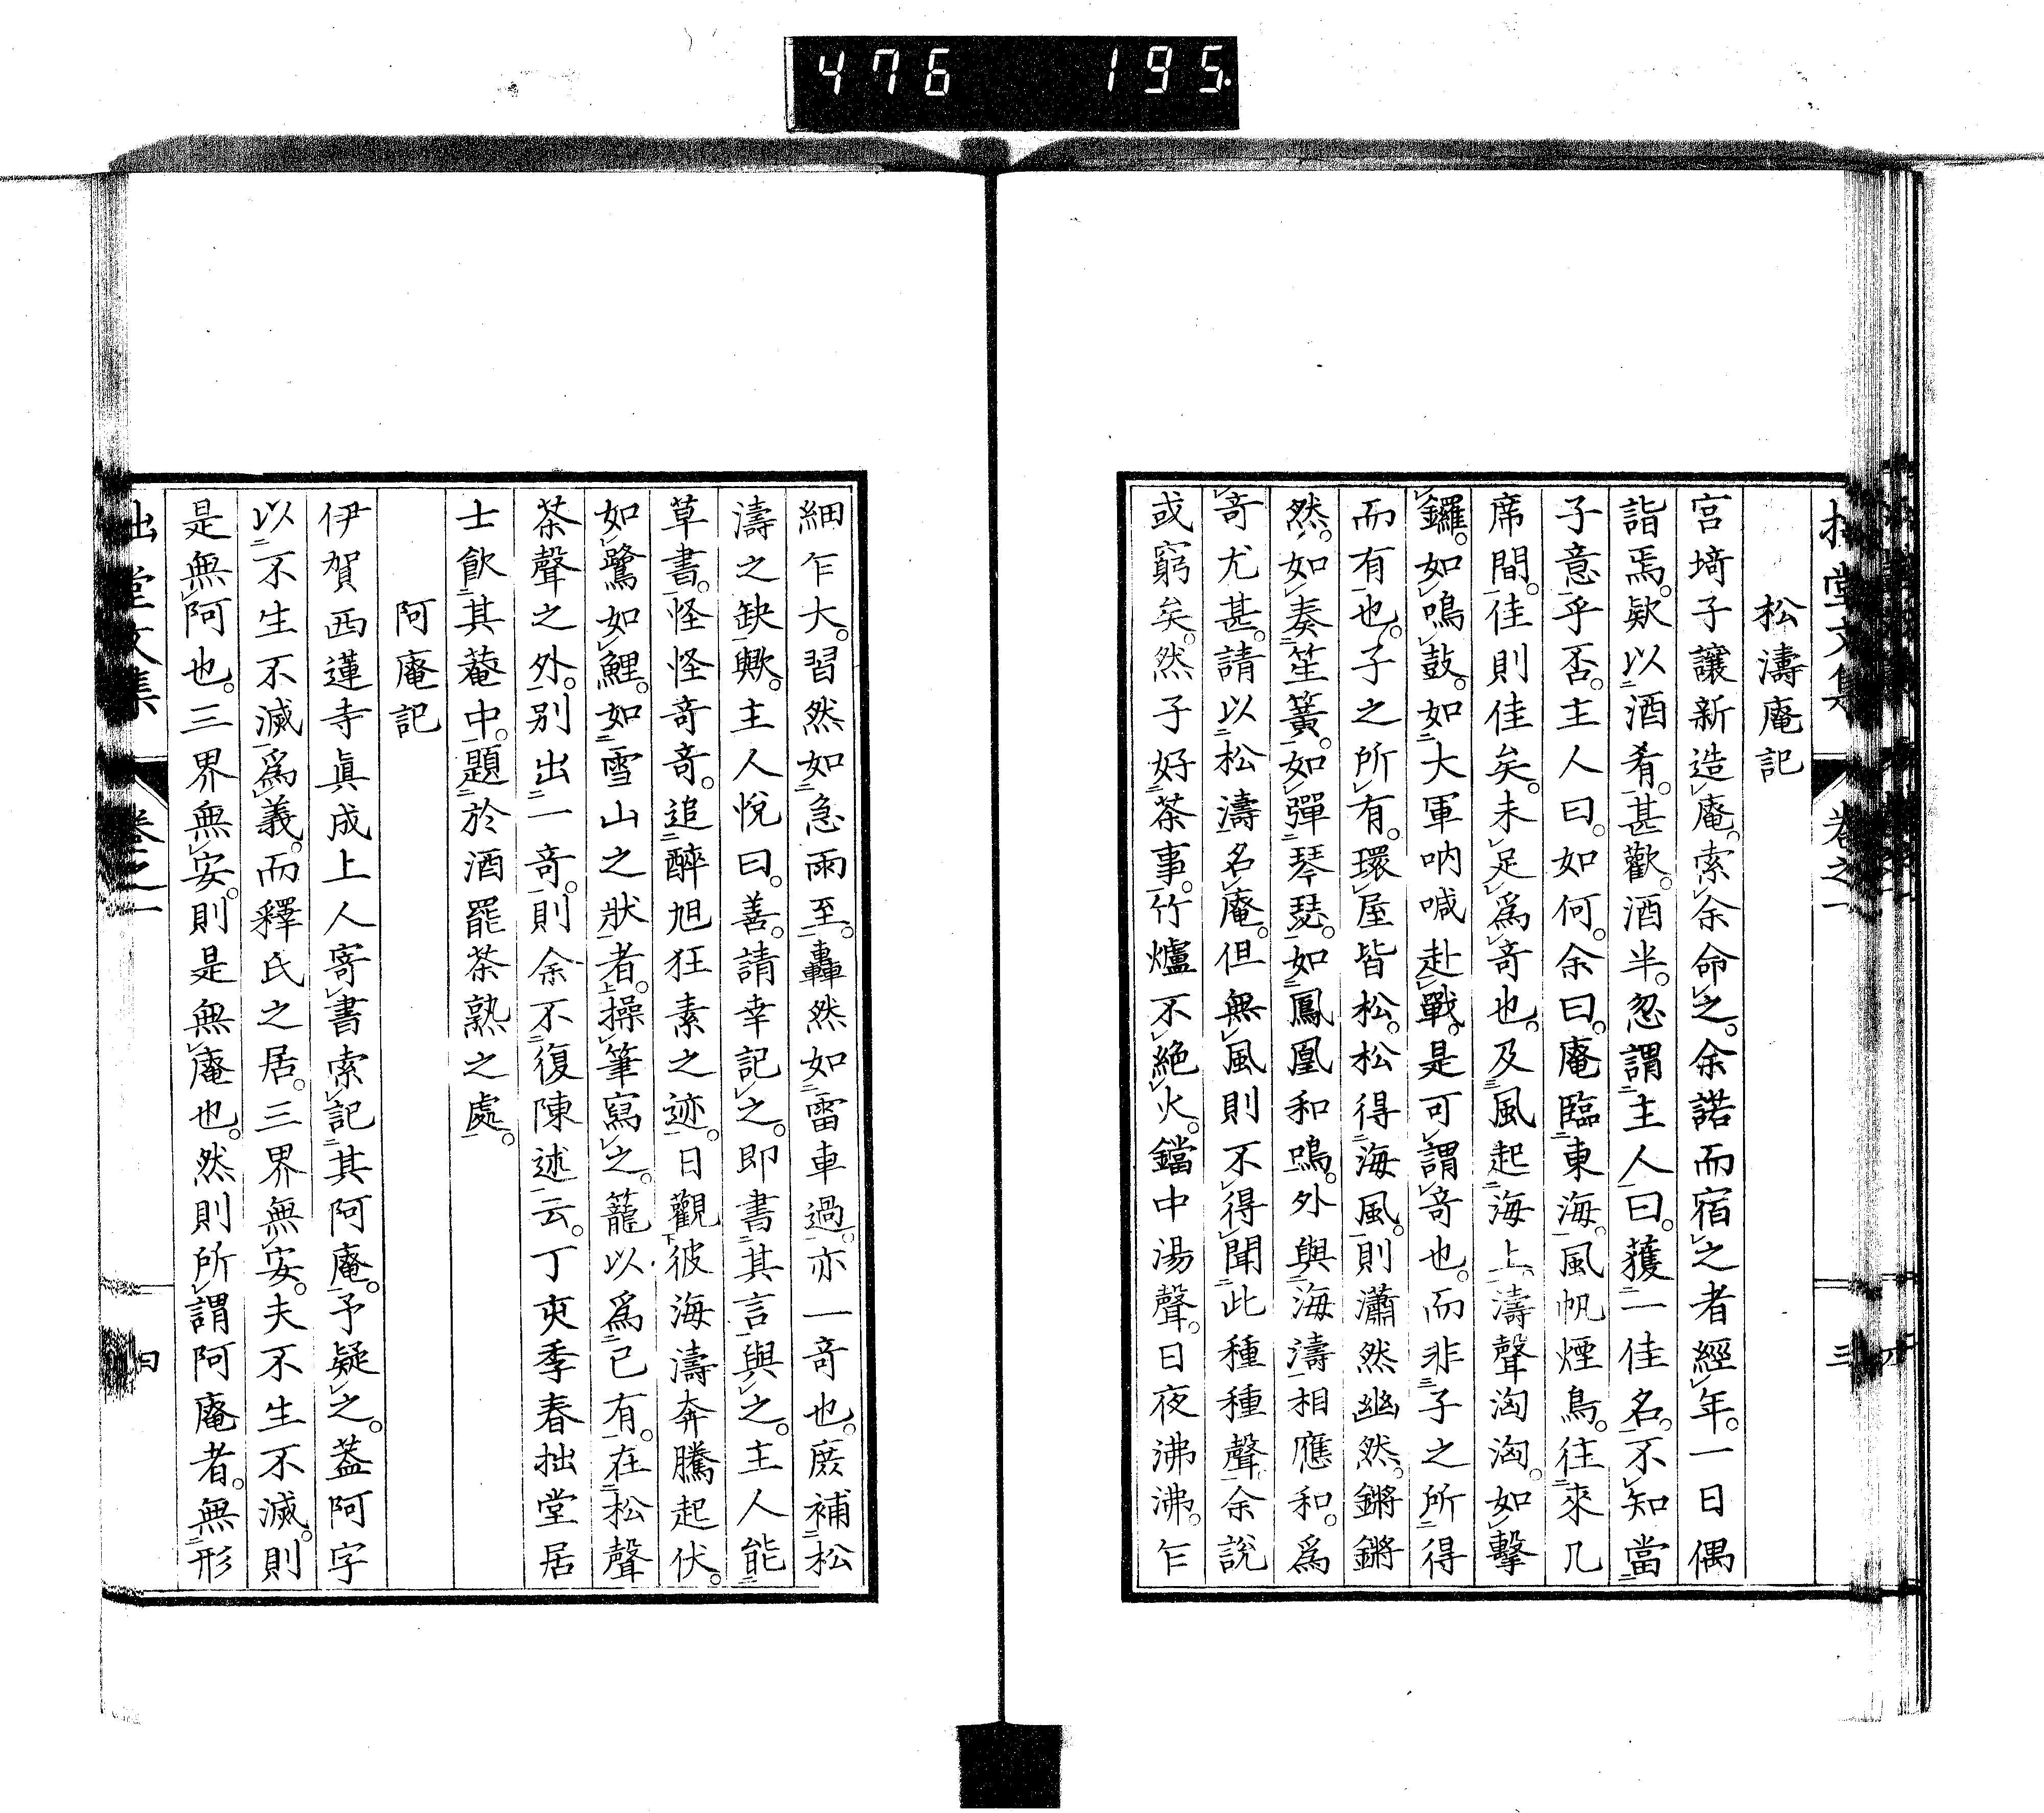 476 195
拙堂文集 卷之一 三
松濤庵記
宮埼子讓新造庵。索余命之。余諾而宿之者經年。一日偶
詣焉。欵以酒肴。甚歡。酒半。忽謂主人曰。獲一佳名。不知當
子意乎否。主人曰。如何。余曰。庵臨東海。風帆煙鳥。往來几
席間。佳則佳矣。未足爲奇也。及風起海上。濤聲洶洶。如擊
鑼。如鳴鼓。如大軍吶喊赴戰。是可謂奇也。而非子之所得
而有也。子之所有。環屋皆松。松得海風。則瀟然幽然。鏘鏘
然。如奏笙簧。如彈琴瑟。如鳳凰和鳴。外與海濤相應和。爲
奇尤甚。請以松濤名庵。但無風則不得聞此種種聲。余說
或窮矣。然子好茶事。竹爐不絕火。鐺中湯聲。日夜沸沸。乍
細乍大。習然如急雨至。轟然如雷車過。亦一奇也。庶補松
濤之缺歟。主人悅曰。善。請幸記之。即書其言與之。主人能
草書。怪怪奇奇。追醉旭狂素之迹。日觀彼海濤奔騰起伏。
如鷺如鯉。如雪山之狀者。操筆寫之。籠以爲己有。在松聲
茶聲之外。別出一奇。則余不復陳述云。丁亥季春拙堂居
士飲其菴中。題於酒罷茶熟之處。
阿庵記
伊賀西蓮寺眞成上人寄書索記其阿庵。予疑之。蓋阿字
以不生不滅爲義。而釋氏之居。三界無安。夫不生不滅。則
是無阿也。三界無安。則是無庵也。然則所謂阿庵者。無形
拙堂文集 卷之一